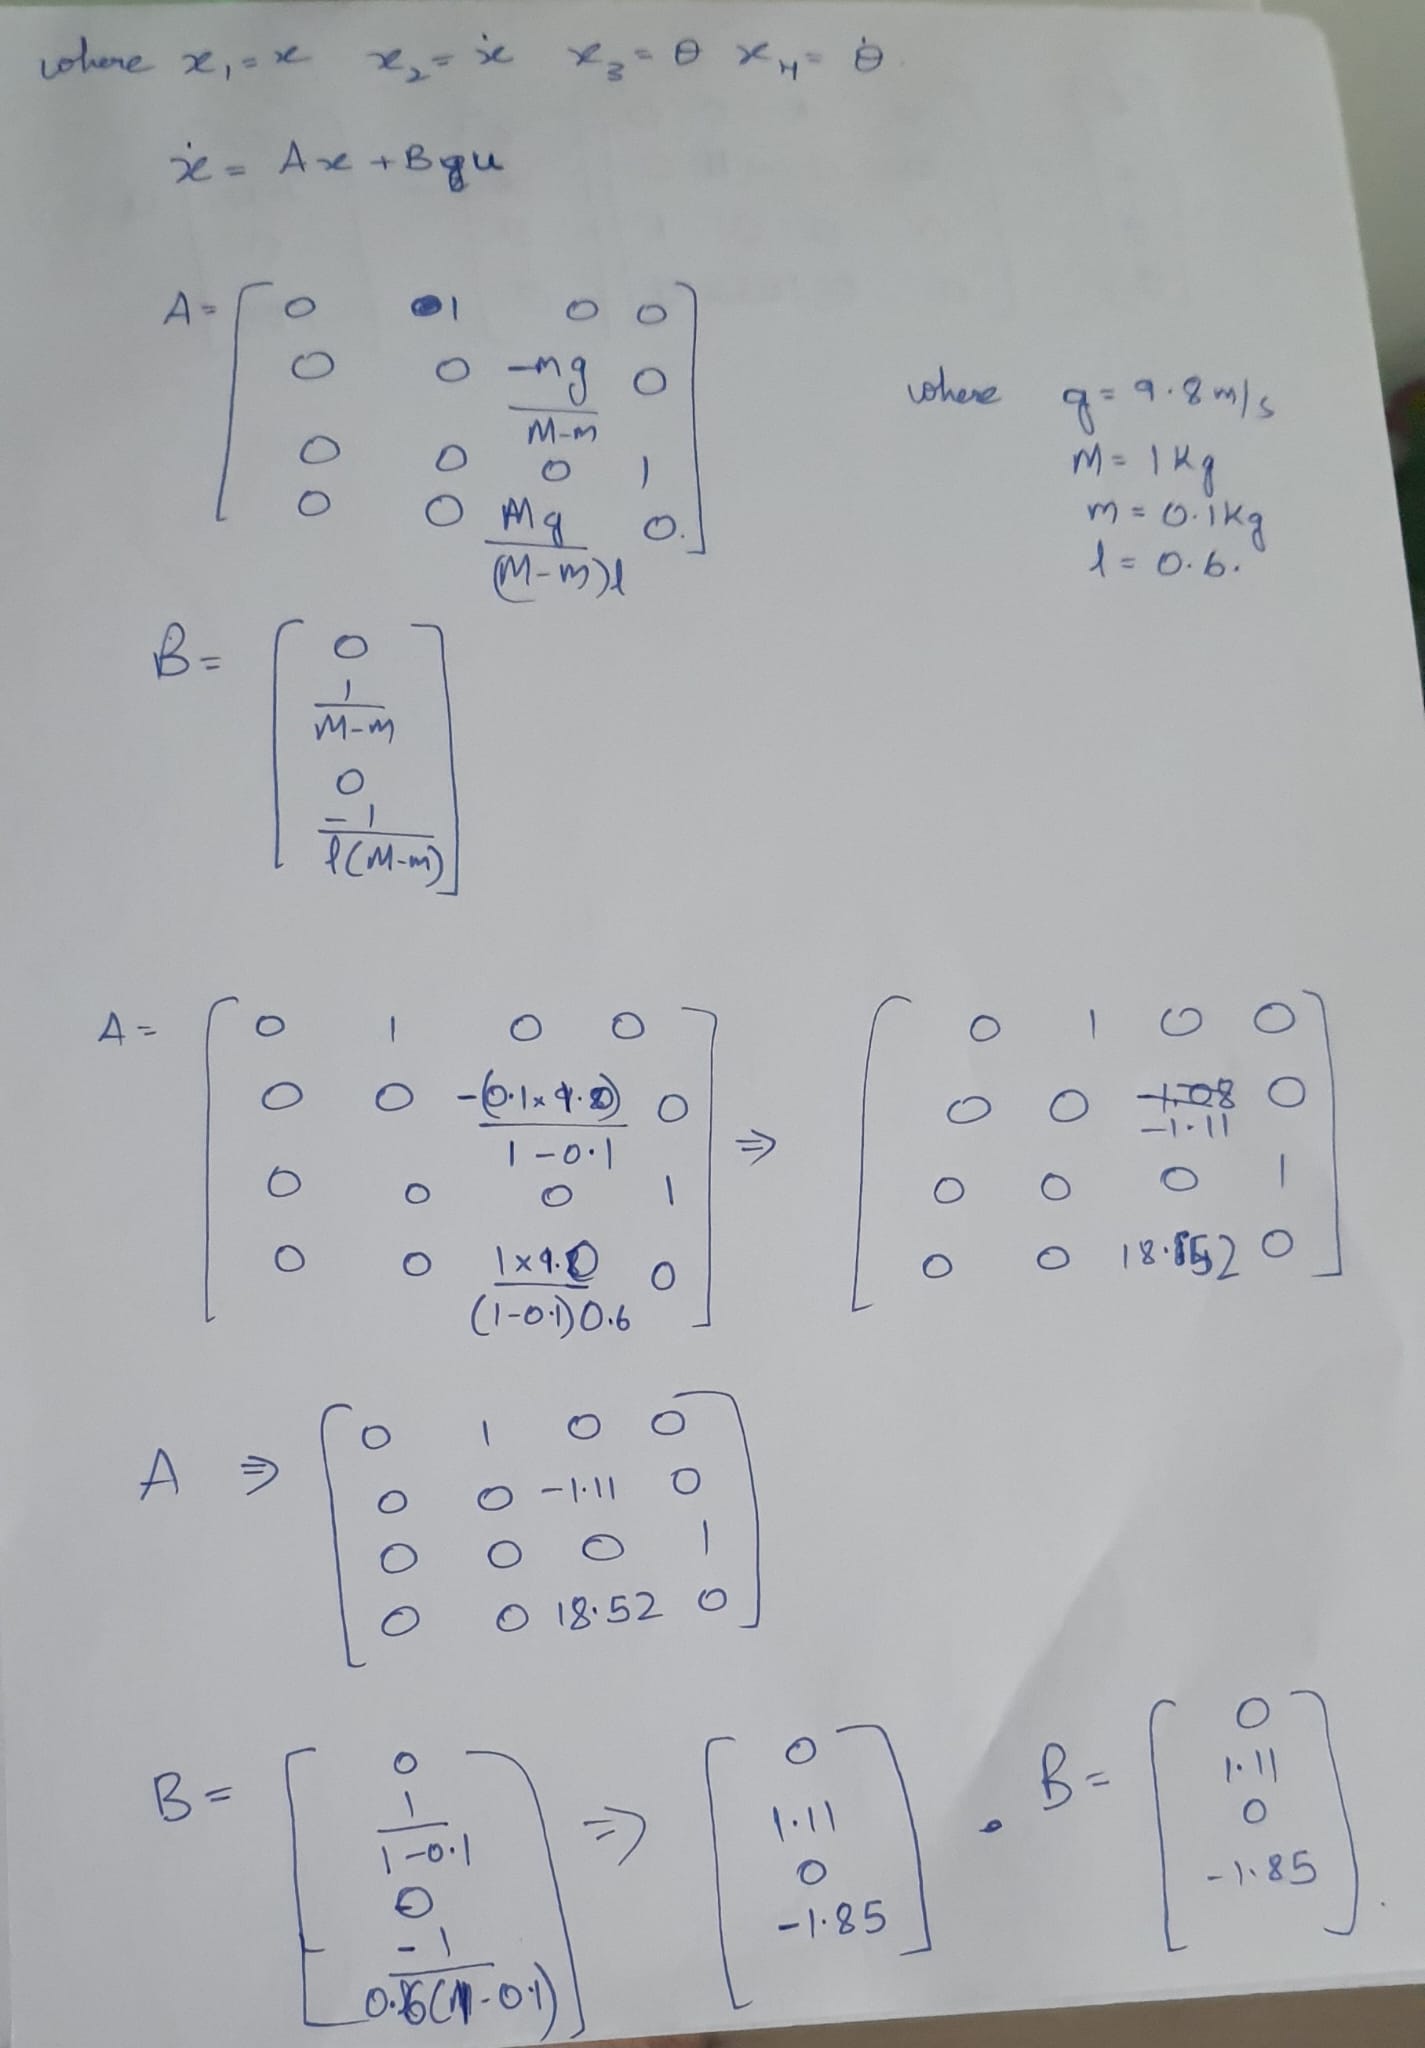 where x₁ = x x₂ = ẋ x₃ = θ x₄ = θ̇
ẋ = Ax + Bu
A = [ 0 1 0 0
0 0 -mg/(M-m) 0
0 0 0 1
0 0 Mg/((M-m)l) 0. ]
where g = 9.8 m/s
M = 1 Kg
m = 0.1Kg
l = 0.6.
B = [ 0
1/(M-m)
0
-1/(l(M-m)) ]
A = [ 0 1 0 0
0 0 -(0.1x9.8)/(1-0.1) 0
0 0 0 1
0 0 1x9.8/((1-0.1)0.6) 0 ] ⇒ [ 0 1 0 0
0 0 -1.11 0
0 0 0 1
0 0 18.52 0 ]
A ⇒ [ 0 1 0 0
0 0 -1.11 0
0 0 0 1
0 0 18.52 0 ]
B = [ 0
1/(1-0.1)
0
-1/(0.6(1-0.1)) ] ⇒ [ 0
1.11
0
-1.85 ]
B = [ 0
1.11
0
-1.85 ].